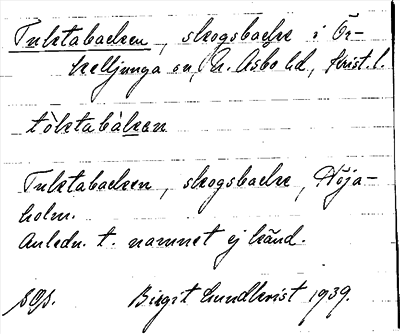 Tuktabacken, skogsbacke i Ör-
kelljunga sn, N. Åsbo hd, Krist. l.
tòktabàkan
Tuktabacken, skogsbacke, Höja-
holm.
Anledn. t. namnet ej känd.
Birgit Lundkvist 1939.